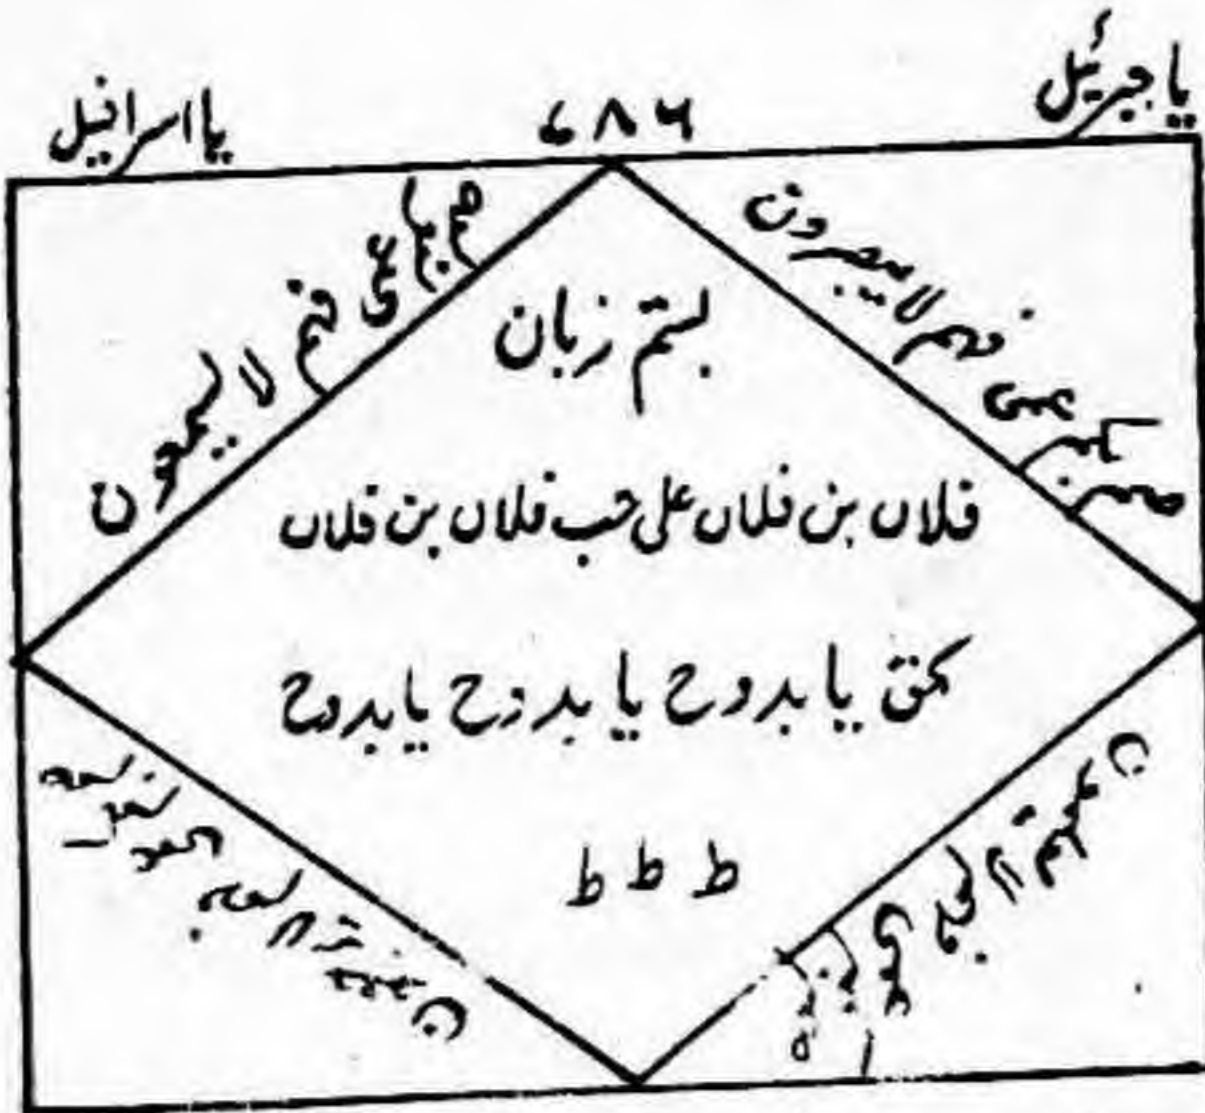 ۷۸۶
یا جبرئیل
یا اسرافیل
صم بکم عمی فہم لا یبصرون
صم بکم عمی فہم لا یسمعون
بستم زبان
فلاں بن فلاں علی حب فلاں بن فلاں
بحق یا بدوح یا بدوح یا بدوح
ط ط ط
صم بکم عمی